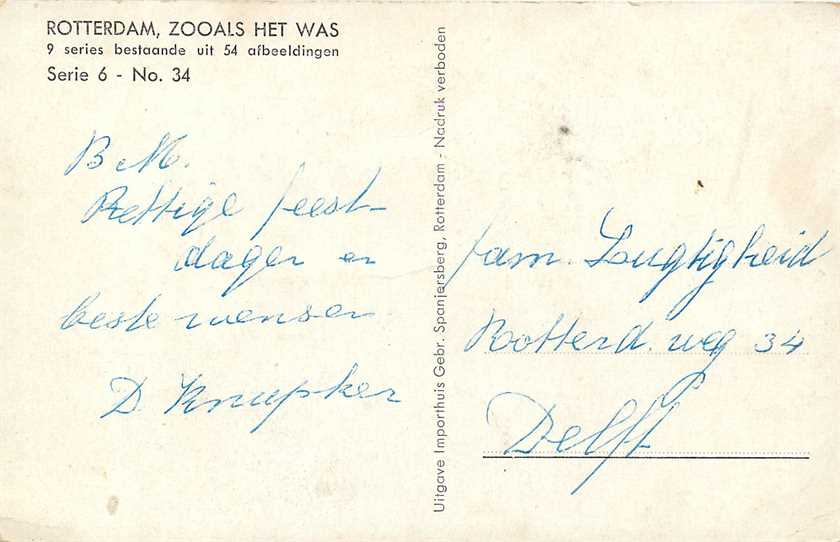 ROTTERDAM, ZOOALS HET WAS
9 series bestaande uit 54 afbeeldingen
Serie 6 - No. 34
B M.
Rettige feest-
dagen en
beste wensen
D. Knupker
Uitgave Importhuis Gebr. Spanjersberg, Rotterdam - Nadruk verboden
fam. Lugtigheid
Rotterd. weg 34
Delft